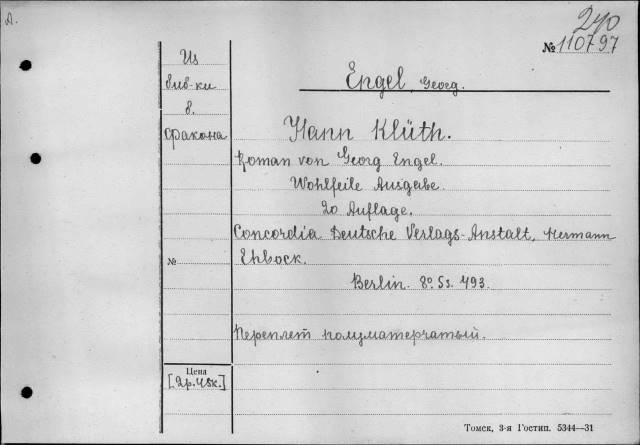 А.
240
№ 110797
Из
биб-ки
б.
фракона
Engel, Georg.
Hann Klüth.
Roman von Georg Engel.
Wohlfeile Ausgabe.
20 Auflage.
Concordia Deutsche Verlags-Anstalt, Hermann
№
Ehbock.
Berlin. 8º. Ss. 493.
Переплет полуматерчатый.
Цена
[2р.45к.]
Томск, 3-я Гостип. 5344—31